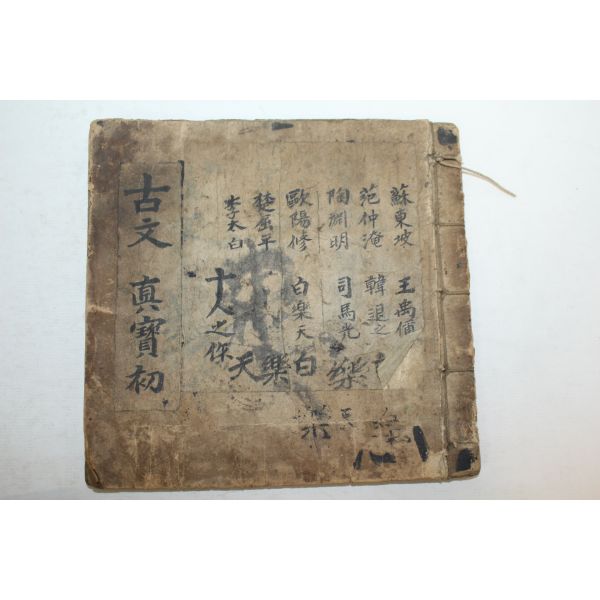 蘇東坡 王禹偁
范仲淹 韓退之
陶淵明 司馬光
歐陽修 白樂天
楚屈平
李太白
十人之作
樂
天樂白
古文 真寶初